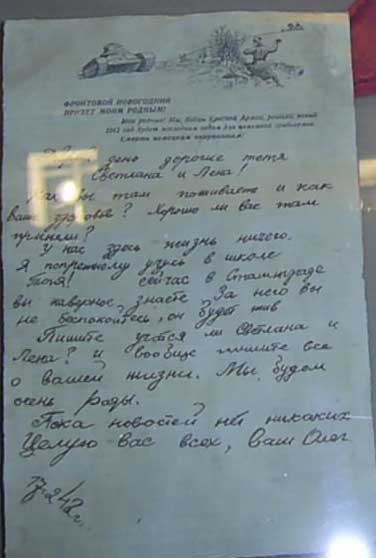 ФРОНТОВОЙ НОВОГОДНИЙ
ПРИВЕТ МОИМ РОДНЫМ!
Мои родные! Мы, бойцы Красной Армии, решили новый
1942 год будет последним годом для немецких
Смерть немецким
день дорогие тетя
Светлана и Лена!
Как вы там поживаете и как
ваше здоровье? Хорошо ли вас там
приняли?
У нас здесь жизнь ничего.
Я попрежнему учусь в школе
сейчас в Сталинграде
вы наверное знаете За него вы
не беспокойтесь, он будет жив
Пишите учатся ли Светлана и
Лена? и вообще пишите все
о вашей жизни. Мы будем
очень рады.
Пока новостей нет никаких
Целую вас всех, ваш Олег